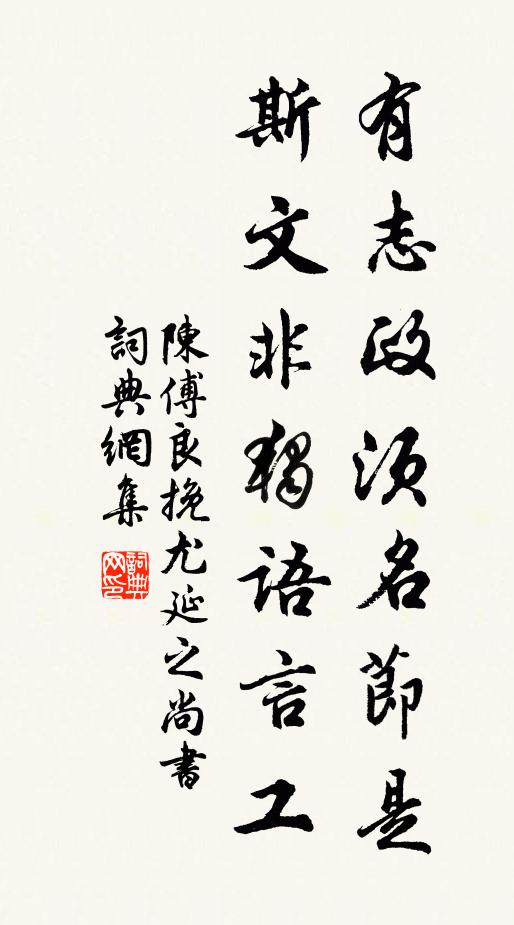 有志政須名節是
斯文非獨語言工
陳傅良挽尤延之尚書
詞典網集
詞典網印